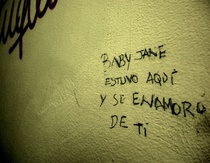 BABY JANE
ESTUVO AQUÍ
Y SE ENAMORO
DE TI